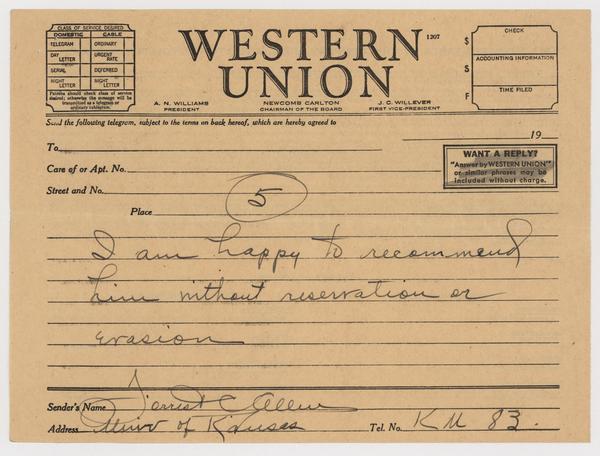 CLASS OF SERVICE DESIRED
DOMESTIC CABLE
TELEGRAM ORDINARY
DAY LETTER URGENT RATE
SERIAL DEFERRED
NIGHT LETTER NIGHT LETTER
Patrons should check class of service
desired; otherwise the message will be
transmitted as a telegram or
ordinary cablegram.
WESTERN
UNION
1207
A. N. WILLIAMS
PRESIDENT
NEWCOMB CARLTON
CHAIRMAN OF THE BOARD
J. C. WILLEVER
FIRST VICE-PRESIDENT
$
S
F
CHECK
ACCOUNTING INFORMATION
TIME FILED
Send the following telegram, subject to the terms on back hereof, which are hereby agreed to
19
To
Care of or Apt. No.
Street and No.
Place
WANT A REPLY?
"Answer by WESTERN UNION"
or similar phrases may be
included without charge.
5
I am happy to recommend
him without reservation or
evasion
Sender's Name Forrest C Allen
Address Univ of Kansas Tel. No. K U 83.